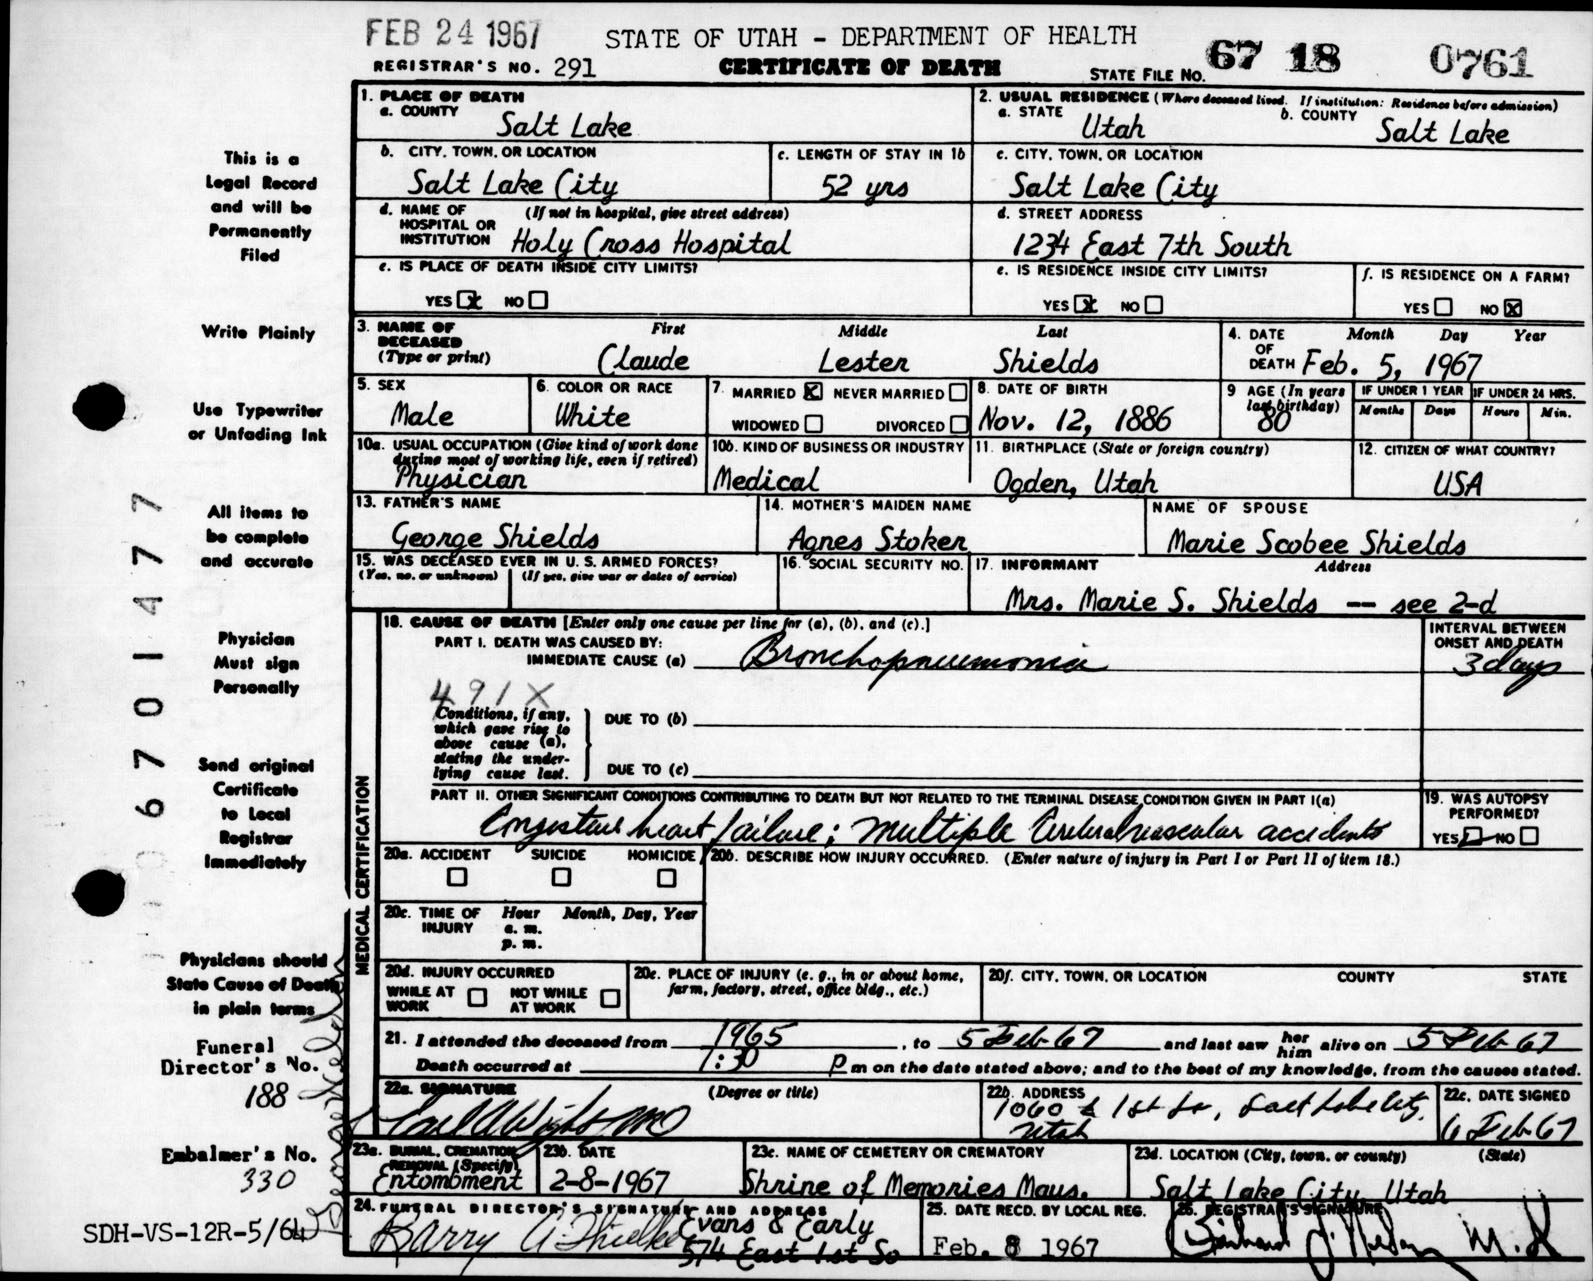 FEB 24 1967 STATE OF UTAH - DEPARTMENT OF HEALTH 67 18 0761
REGISTRAR'S NO. 291 CERTIFICATE OF DEATH STATE FILE NO.
This is a
Legal Record
and will be
Permanently
Filed
Write Plainly
Use Typewriter
or Unfading Ink
All items to
be complete
and accurate
Physician
Must sign
Personally
Send original
Certificate
to Local
Registrar
Immediately
Physicians should
State Cause of Death
in plain terms
Funeral
Director's No.
188
Embalmer's No.
330
SDH-VS-12R-5/64
6701477
1. PLACE OF DEATH
a. COUNTY
Salt Lake
2. USUAL RESIDENCE (Where deceased lived. If institution: Residence before admission)
a. STATE Utah b. COUNTY Salt Lake
b. CITY, TOWN, OR LOCATION
Salt Lake City
c. LENGTH OF STAY IN 1b
52 yrs
c. CITY, TOWN, OR LOCATION
Salt Lake City
d. NAME OF (If not in hospital, give street address)
HOSPITAL OR
INSTITUTION Holy Cross Hospital
d. STREET ADDRESS
1234 East 7th South
e. IS PLACE OF DEATH INSIDE CITY LIMITS?
YES X NO
e. IS RESIDENCE INSIDE CITY LIMITS?
YES X NO
f. IS RESIDENCE ON A FARM?
YES NO X
3. NAME OF First Middle Last
DECEASED
(Type or print) Claude Lester Shields
4. DATE Month Day Year
OF
DEATH Feb. 5, 1967
5. SEX
Male
6. COLOR OR RACE
White
7. MARRIED X NEVER MARRIED
WIDOWED DIVORCED
8. DATE OF BIRTH
Nov. 12, 1886
9 AGE (In years
last birthday)
80
IF UNDER 1 YEAR IF UNDER 24 HRS.
Months Days Hours Min.
10a. USUAL OCCUPATION (Give kind of work done
during most of working life, even if retired)
Physician
10b. KIND OF BUSINESS OR INDUSTRY
Medical
11. BIRTHPLACE (State or foreign country)
Ogden, Utah
12. CITIZEN OF WHAT COUNTRY?
USA
13. FATHER'S NAME
George Shields
14. MOTHER'S MAIDEN NAME
Agnes Stoker
NAME OF SPOUSE
Marie Scobee Shields
15. WAS DECEASED EVER IN U. S. ARMED FORCES?
(Yes, no, or unknown) (If yes, give war or dates of service)
16. SOCIAL SECURITY NO.
17. INFORMANT Address
Mrs. Marie S. Shields -- see 2-d
MEDICAL CERTIFICATION
18. CAUSE OF DEATH [Enter only one cause per line for (a), (b), and (c).]
PART I. DEATH WAS CAUSED BY:
IMMEDIATE CAUSE (a) Bronchopneumonia
INTERVAL BETWEEN
ONSET AND DEATH
3 days
491X
Conditions, if any,
which gave rise to
above cause (a),
stating the under-
lying cause last.
DUE TO (b)
DUE TO (c)
PART II. OTHER SIGNIFICANT CONDITIONS CONTRIBUTING TO DEATH BUT NOT RELATED TO THE TERMINAL DISEASE CONDITION GIVEN IN PART I(a)
Congestive heart failure; multiple cerebral vascular accidents
19. WAS AUTOPSY
PERFORMED?
YES NO
20a. ACCIDENT SUICIDE HOMICIDE
20b. DESCRIBE HOW INJURY OCCURRED. (Enter nature of injury in Part I or Part II of item 18.)
20c. TIME OF Hour Month, Day, Year
INJURY a. m.
p. m.
20d. INJURY OCCURRED
WHILE AT WORK NOT WHILE AT WORK
20e. PLACE OF INJURY (e. g., in or about home,
farm, factory, street, office bldg., etc.)
20f. CITY, TOWN, OR LOCATION COUNTY STATE
21. I attended the deceased from 1965, to 5 Feb 67 and last saw her him alive on 5 Feb 67
Death occurred at 1:30 P m on the date stated above; and to the best of my knowledge, from the causes stated.
22a. SIGNATURE (Degree or title)
MD
22b. ADDRESS
1060 E 1st So, Salt Lake City,
Utah
22c. DATE SIGNED
6 Feb 67
23a. BURIAL, CREMATION,
REMOVAL (Specify)
Entombment
23b. DATE
2-8-1967
23c. NAME OF CEMETERY OR CREMATORY
Shrine of Memories Maus.
23d. LOCATION (City, town, or county) (State)
Salt Lake City, Utah
24. FUNERAL DIRECTOR'S SIGNATURE AND ADDRESS
Barry A. Evans & Early
574 East 1st So
25. DATE RECD. BY LOCAL REG.
Feb. 8 1967
26. REGISTRAR'S SIGNATURE
M.D.